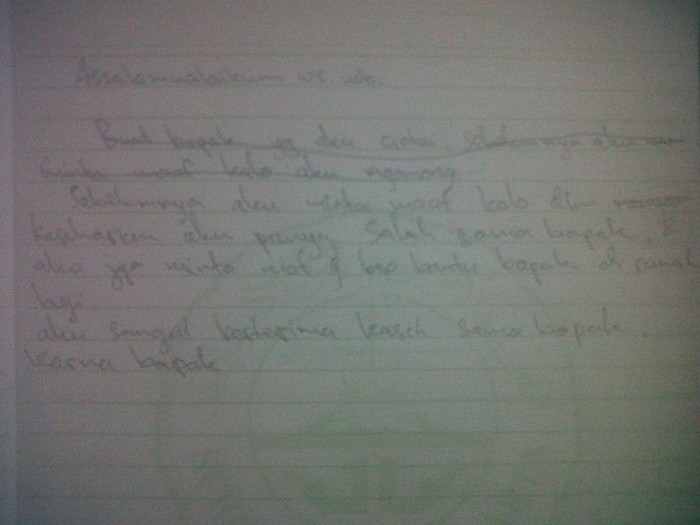 Assalamualaikum wr. wb.
Buat bapak yg aku cintai. Sebelumnya aku
minta maaf kalo aku ngomong
Sebelumnya aku minta maaf kalo aku
keseharian aku punya salah sama bapak, &
aku jga minta maaf g bsa bantu bapak di
lagi
aku sangat berterima kasih sama bapak...
karna bapak